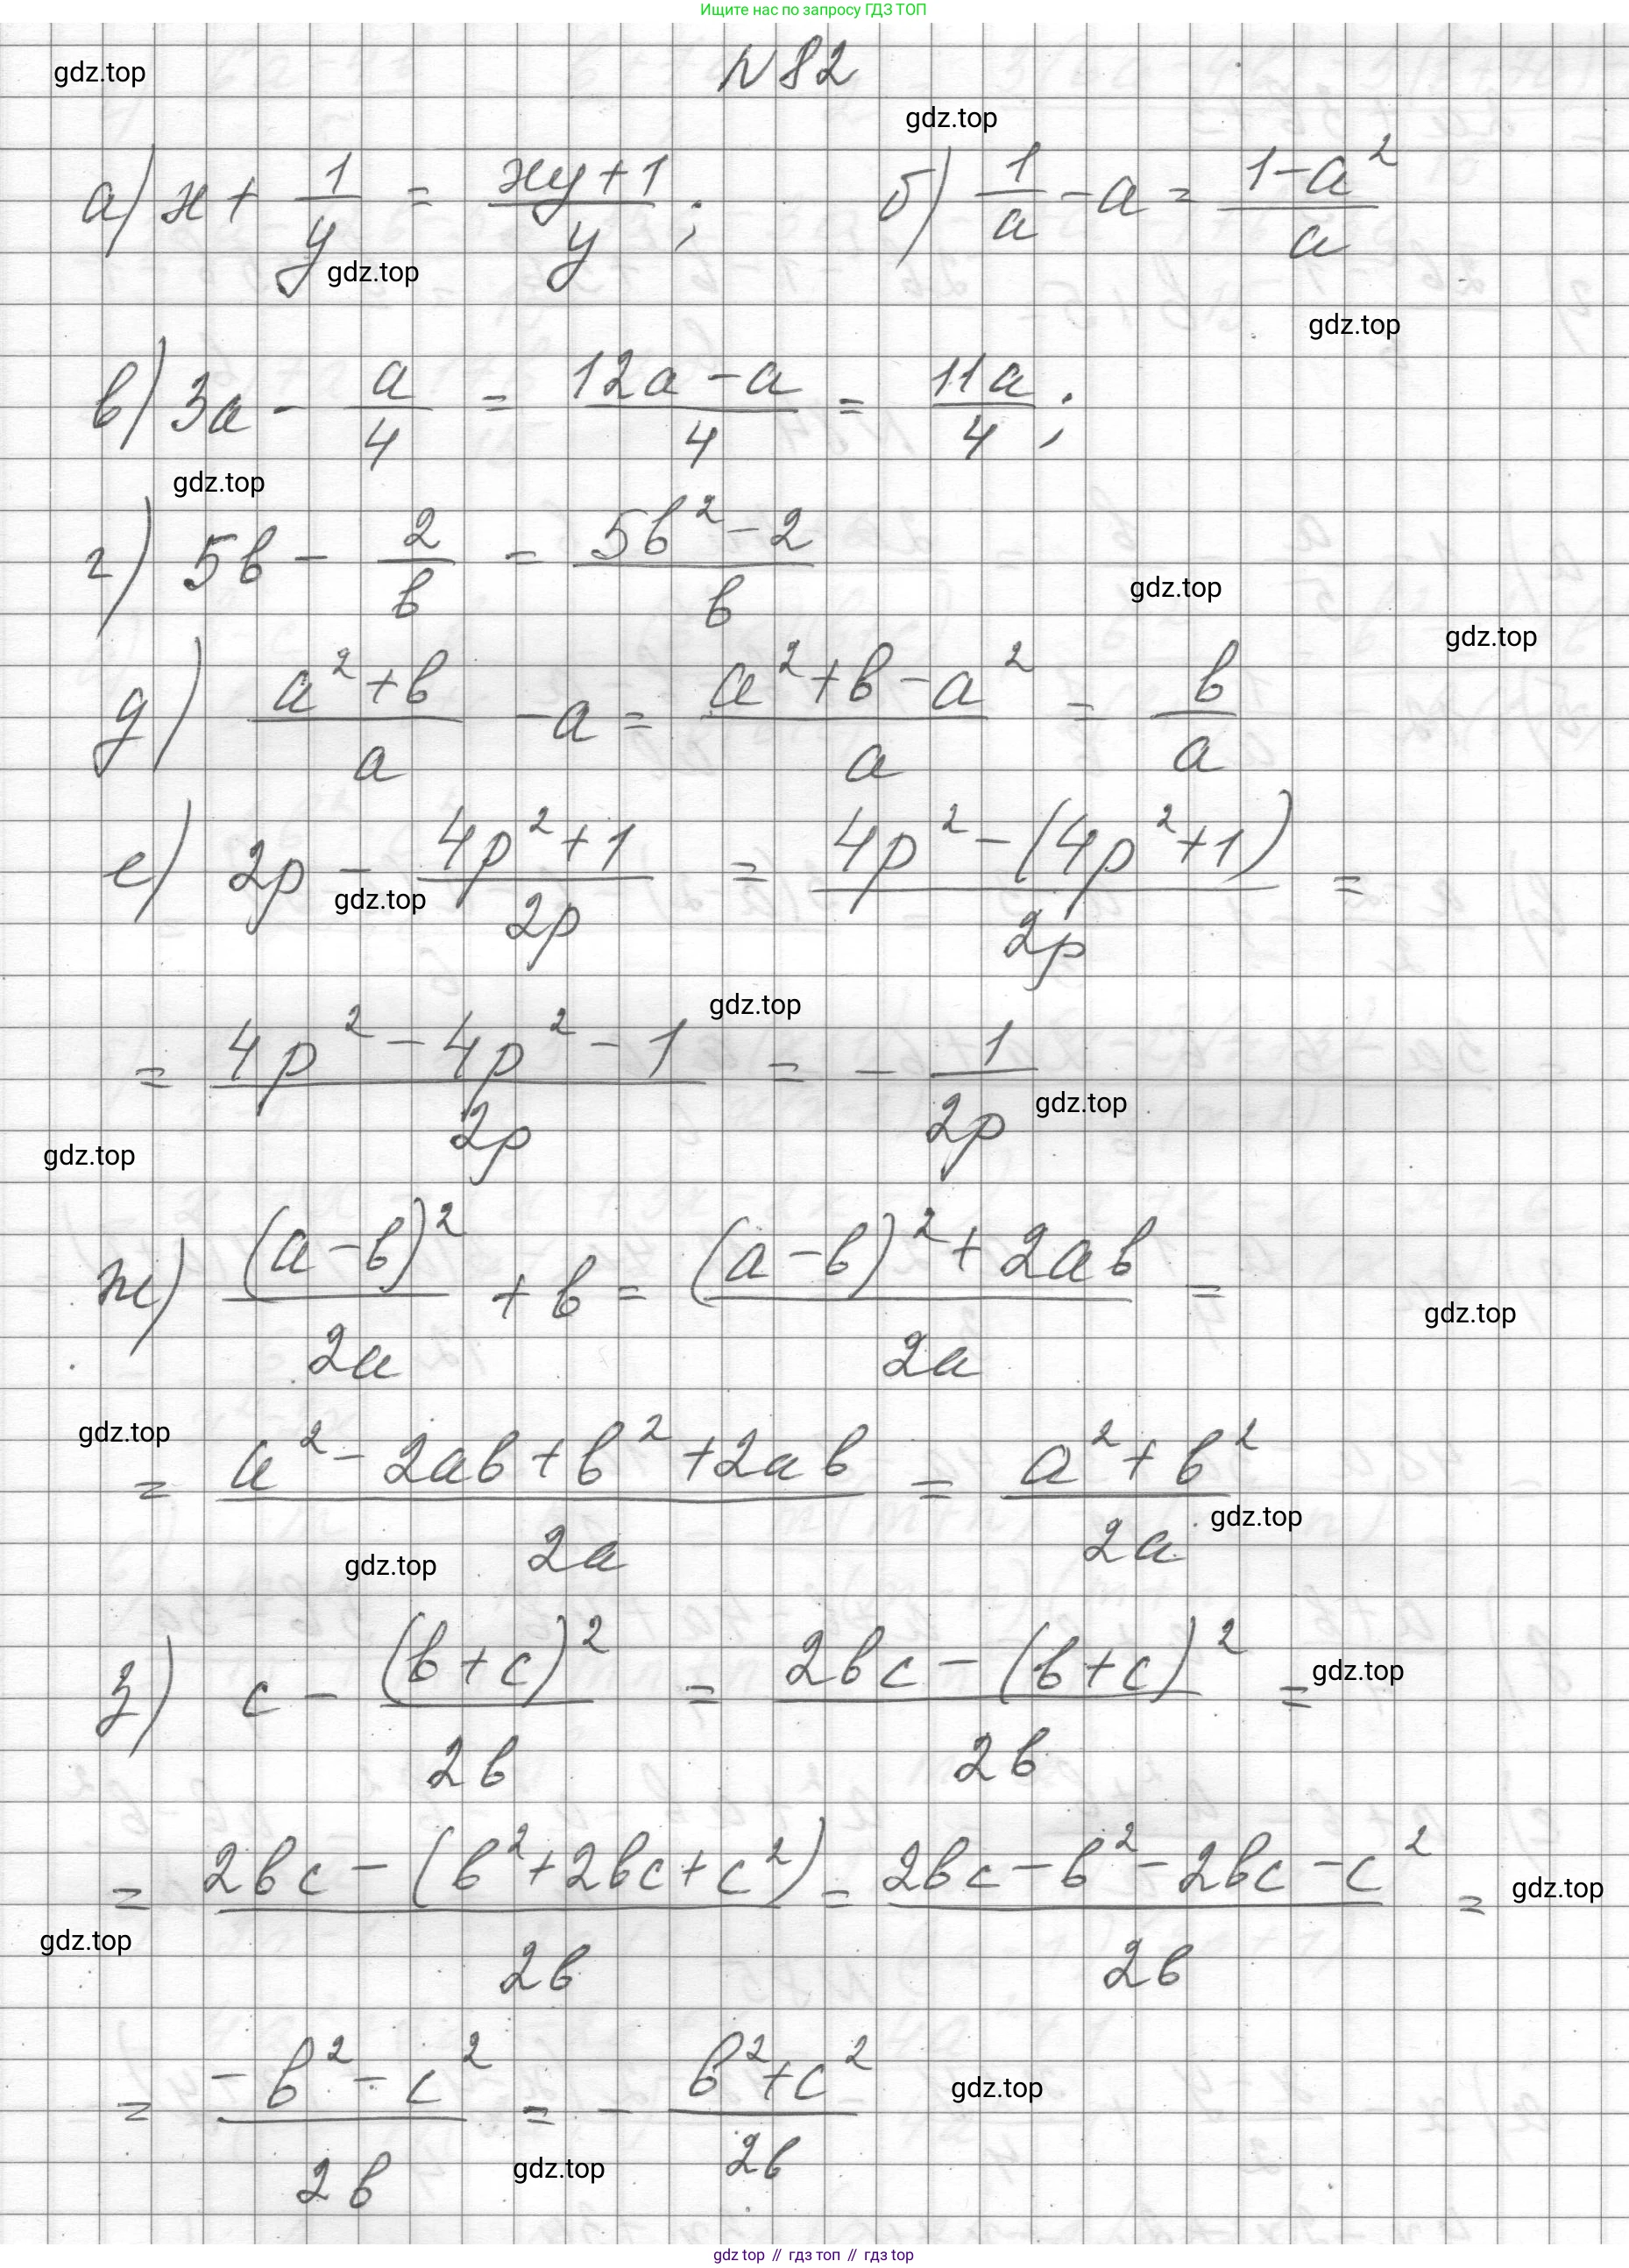 Ищите нас по запросу ГДЗ ТОП
N 82
gdz.top
gdz.top
а) x + 1/y = (xy+1)/y ; б) 1/a - a = (1-a²)/a
gdz.top
gdz.top
в) 3a - a/4 = (12a-a)/4 = 11a/4 ;
gdz.top
г) 5b - 2/b = (5b²-2)/b
gdz.top
gdz.top
д) (a²+b)/a - a = (a²+b-a²)/a = b/a
е) 2p - (4p²+1)/2p = (4p²-(4p²+1))/2p =
gdz.top
gdz.top
= (4p²-4p²-1)/2p = - 1/2p
gdz.top
gdz.top
ж) (a-b)²/2a + b = ((a-b)²+2ab)/2a =
gdz.top
gdz.top
= (a²-2ab+b²+2ab)/2a = (a²+b²)/2a
gdz.top
gdz.top
з) c - (b+c)²/2b = (2bc-(b+c)²)/2b =
gdz.top
= (2bc-(b²+2bc+c²))/2b = (2bc-b²-2bc-c²)/2b =
gdz.top
gdz.top
= (-b²-c²)/2b = - (b²+c²)/2b
gdz.top
gdz.top
gdz top // гдз топ // гдз top